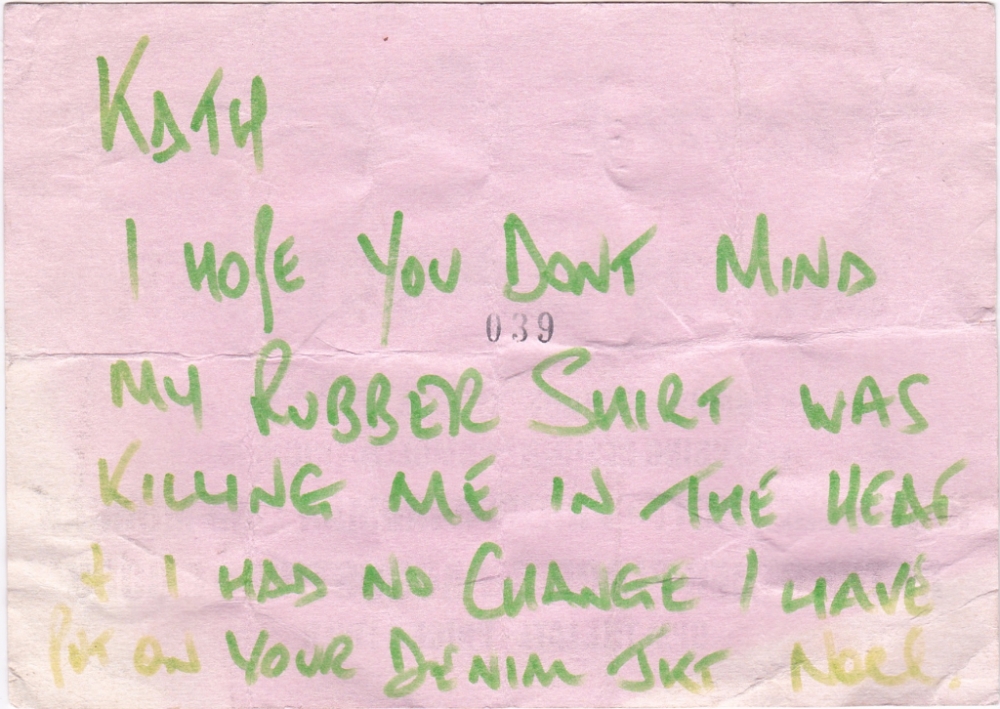 KATH
I HOPE YOU DONT MIND
039
MY RUBBER SHIRT WAS
KILLING ME IN THE HEAT
+ I HAD NO CHANGE I HAVE
PUT ON YOUR DENIM JKT Noel.